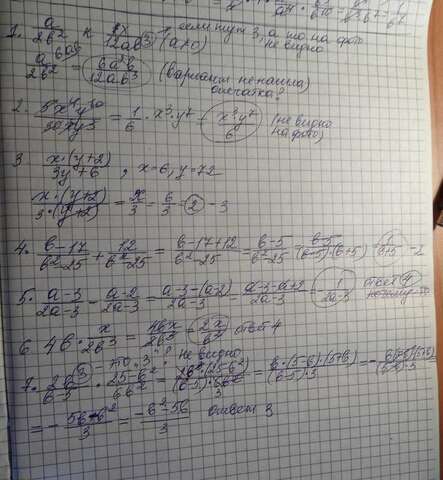 1. a/2b² к 6x/12ab³ (a≠0) если нуж 3, а то на фото не видно
a/2b² = 6a²b/12ab³ (вариант ненашла) опечатка?
2. 5x⁴y¹⁰/30xy³ = 1/6 · x³ · y⁷ = x³y⁷/6 (не видно на фото)
3 x·(y+2)/3y+6, x=6, y=72
x·(y+2)/3·(y+2) = x/3 = 6/3 = 2 - 3
4. b-17/b²-25 + 12/b²-25 = b-17+12/b²-25 = b-5/b²-25 = b-5/(b-5)·(b+5) = 1/b+5 - 2
5. a-3/2a-3 - a-2/2a-3 = a-3-(a-2)/2a-3 = a-3-a+2/2a-3 = -1/2a-3 ответ 4
6 4b · x/2b³ = 4bx/2b³ = 2x/b² ответ 4
7. 2b³/b-5 · 25-b²/6b² не видно = 2b³·(25-b²)/(b-5)·6b² = b·(5-b)·(5+b)/(b-5)·3 =
= - 5b+b²/3 = -b²-5b/3 ответ 3